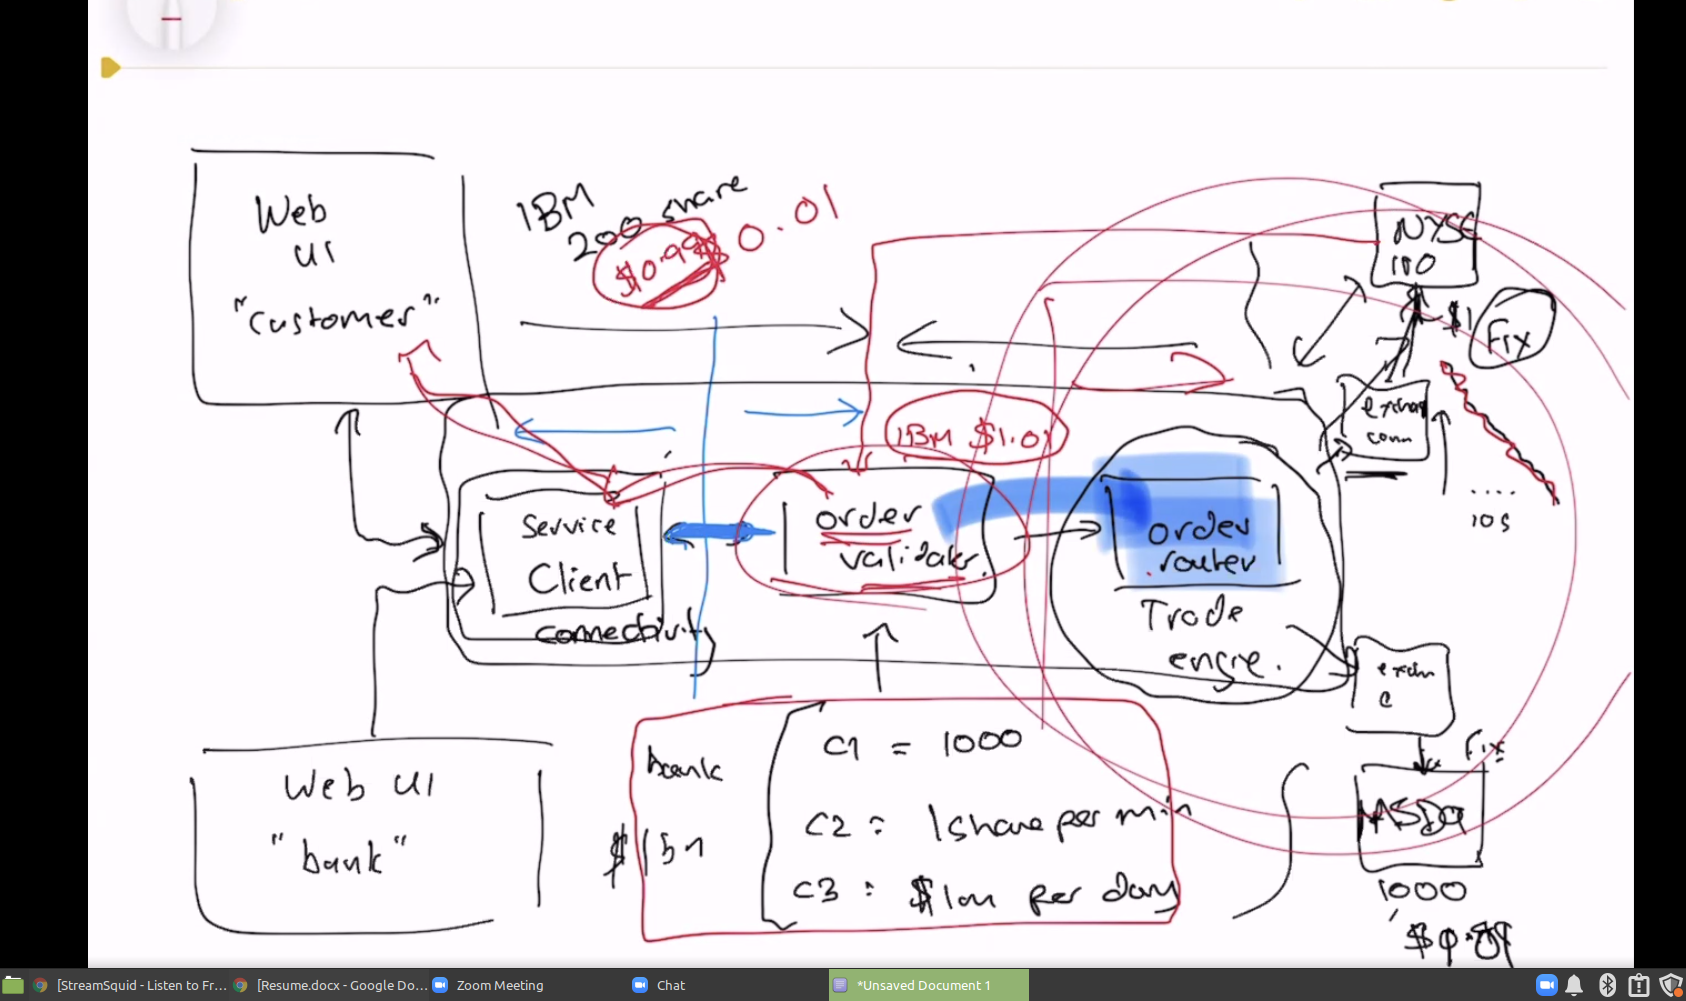 Web
UI
"customer"
IBM
200 share
$0.99
$ 0.01
NYSE
100
$1
Fix
exchan
conn
IBM $1.01
Service
Client
connectivity
order
validator
order
router
Trade
engine.
....
ios
exchn
c
Fix
NASDQ
1000
Web UI
"bank"
bank
$1bn
C1 = 1000
C2 : 1 share per min
C3 : $1m per day
[StreamSquid - Listen to Fr...
[Resume.docx - Google Do...
Zoom Meeting
Chat
*Unsaved Document 1